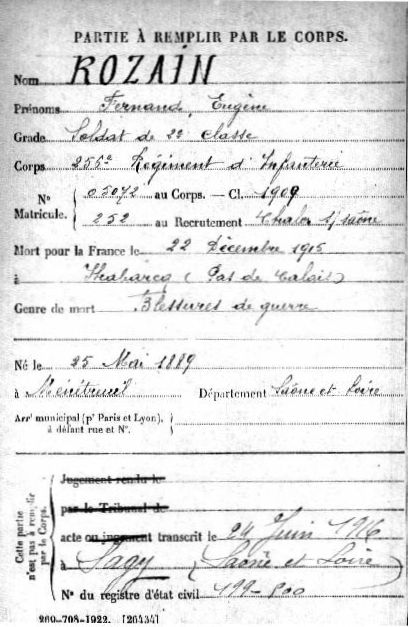 PARTIE À REMPLIR PAR LE CORPS.
Nom ROZAIN
Prénoms Fernand, Eugène
Grade Soldat de 2e classe
Corps 255e Régiment d'Infanterie
N° Matricule. { 05072 au Corps. — Cl. 1909
252 au Recrutement Chalon s/ saône
Mort pour la France le 22 Décembre 1915
à Habarcq (Pas de Calais)
Genre de mort Blessures de guerre
Né le 25 Mai 1889
à Département Saône et Loire
Arrt municipal (pr Paris et Lyon), à défaut rue et N°.
Cette partie n'est pas à remplir par le Corps.
Jugement rendu le
par le Tribunal de
acte ou jugement transcrit le 24 Juin 1916
à Sagy (Saône et Loire)
N° du registre d'état civil 199-800
269-708-1922. [26434]